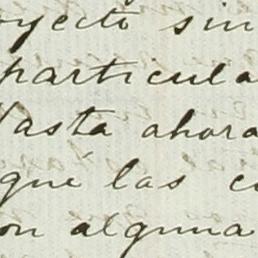 oyecto sin
particula
Hasta ahora
qué las c
on alguna